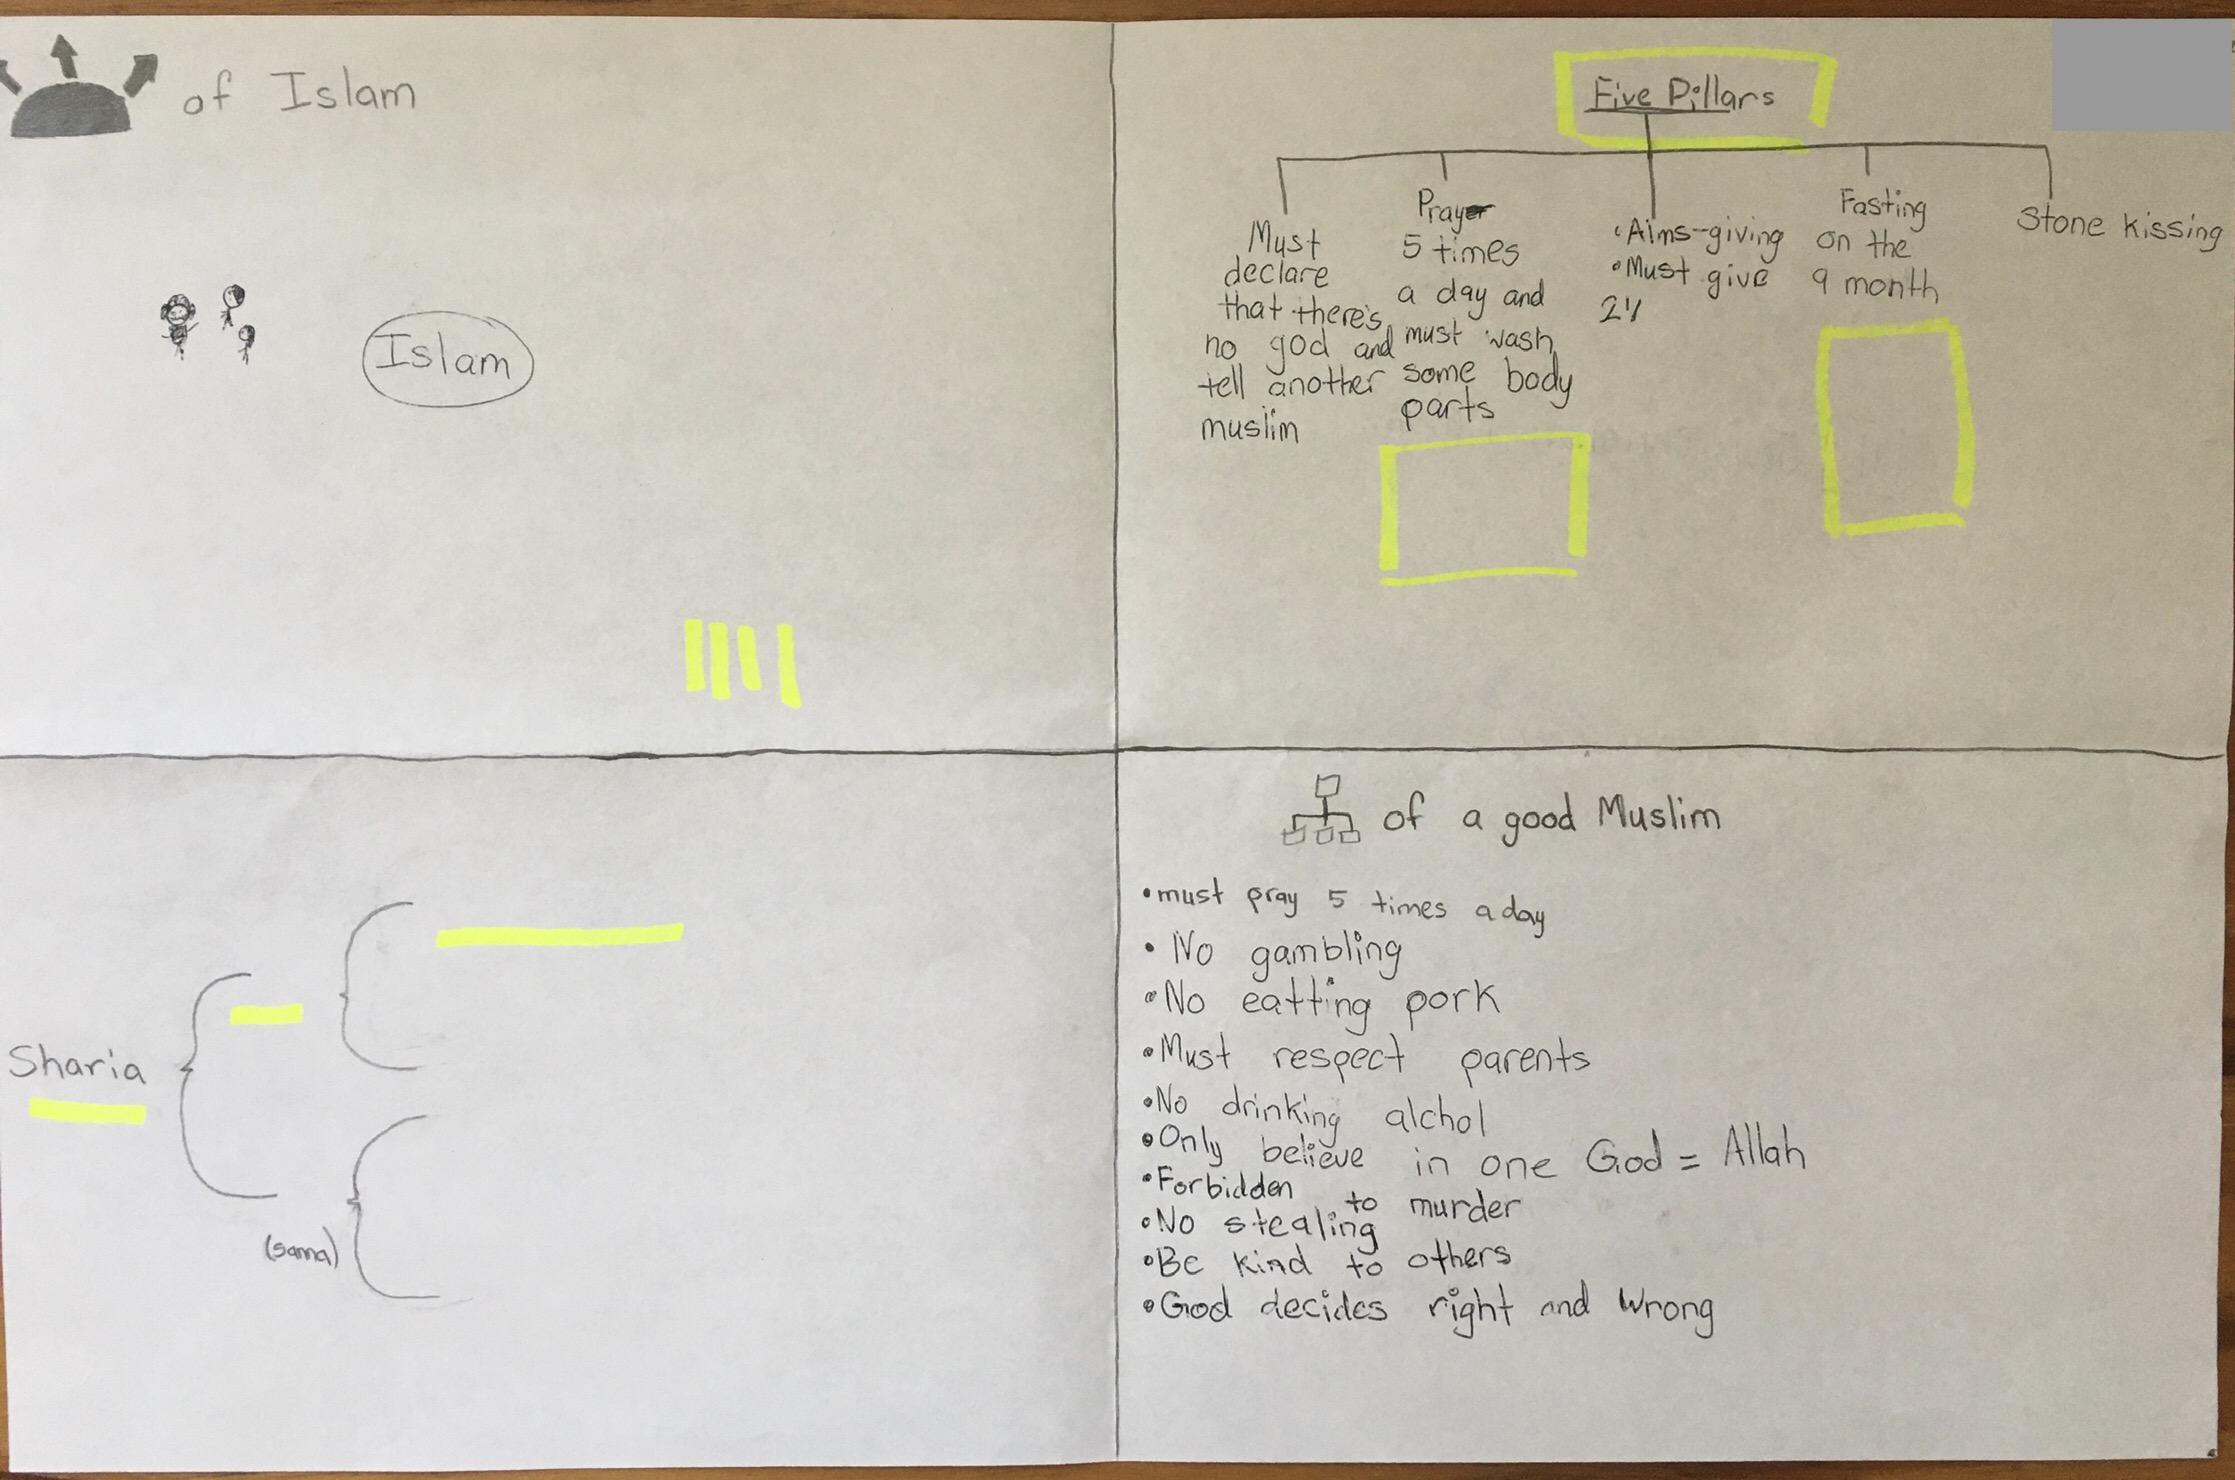 of Islam
Islam
Five Pillars
Must
declare
that there's
no god and
tell another
muslim
Pray
5 times
a day and
must wash
some body
parts
•Alms-giving
•Must give
2%
Fasting
on the
9 month
Stone kissing
Sharia
(sama)
of a good Muslim
•must pray 5 times a day
• No gambling
•No eatting pork
•Must respect parents
•No drinking alchol
•Only believe in one God = Allah
•Forbidden to murder
•No stealing
•Be kind to others
•God decides right and wrong